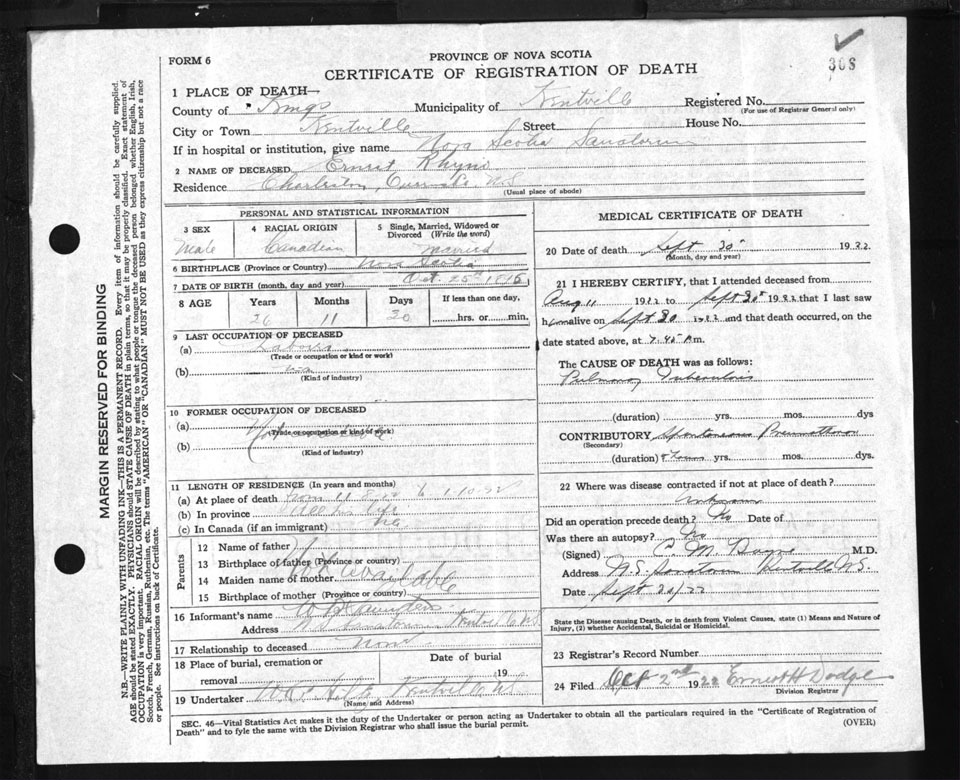 308
FORM 6
PROVINCE OF NOVA SCOTIA
CERTIFICATE OF REGISTRATION OF DEATH
1 PLACE OF DEATH—
County of Kings Municipality of Kentville Registered No.
(For use of Registrar General only)
City or Town Kentville Street House No.
If in hospital or institution, give name Nova Scotia Sanatorium
2 NAME OF DECEASED Ernest Rhyno
Residence Charleston, N.S.
(Usual place of abode)
PERSONAL AND STATISTICAL INFORMATION
3 SEX 4 RACIAL ORIGIN 5 Single, Married, Widowed or Divorced (Write the word)
Male Canadian Married
6 BIRTHPLACE (Province or Country) Nova Scotia
7 DATE OF BIRTH (month, day and year) Oct 25th
8 AGE Years Months Days If less than one day,
26 11 hrs. or min.
9 LAST OCCUPATION OF DECEASED
(a) Laborer
(Trade or occupation or kind or work)
(b)
(Kind of industry)
10 FORMER OCCUPATION OF DECEASED
(a)
(Trade or occupation or kind of work)
(b)
(Kind of industry)
11 LENGTH OF RESIDENCE (In years and months)
(a) At place of death from 11 to 1.10.22
(b) In province All his life
(c) In Canada (if an immigrant)
Parents
12 Name of father
13 Birthplace of father (Province or country)
14 Maiden name of mother Not available
15 Birthplace of mother (Province or country)
16 Informant's name
Address N.S. Sanatorium Kentville N.S.
17 Relationship to deceased None
18 Place of burial, cremation or removal Date of burial 19
19 Undertaker Kentville N.S.
(Name and Address)
MEDICAL CERTIFICATE OF DEATH
20 Date of death Sept 30th 1922.
(Month, day and year)
21 I HEREBY CERTIFY, that I attended deceased from
Aug 11 1922 to Sept 30th 1922 that I last saw
him alive on Sept 30 1922 and that death occurred, on the
date stated above, at 7.45 A m.
The CAUSE OF DEATH was as follows:
Pulmonary Tuberculosis
(duration) yrs. mos. dys
CONTRIBUTORY Spontaneous Pneumothorax
(Secondary)
(duration) hours yrs. mos. dys.
22 Where was disease contracted if not at place of death?
Unknown
Did an operation precede death? No Date of
Was there an autopsy? No
(Signed) M.D.
Address N.S. Sanatorium Kentville N.S.
Date Sept 30/22
State the Disease causing Death, or in death from Violent Causes, state (1) Means and Nature of Injury, (2) whether Accidental, Suicidal or Homicidal.
23 Registrar's Record Number
24 Filed Oct 2nd 1922 Ernest H Dodge
Division Registrar
SEC. 46—Vital Statistics Act makes it the duty of the Undertaker or person acting as Undertaker to obtain all the particulars required in the "Certificate of Registration of Death" and to fyle the same with the Division Registrar who shall issue the burial permit.
(OVER)
MARGIN RESERVED FOR BINDING
N.B.—WRITE PLAINLY WITH UNFADING INK—THIS IS A PERMANENT RECORD. Every item of information should be carefully supplied.
AGE should be stated EXACTLY. PHYSICIANS should STATE CAUSE OF DEATH in plain terms, so that it may be properly classified. Exact statement of
OCCUPATION is very important. RACIAL ORIGIN will be described by stating to what people or tongue the deceased person belonged whether English, Irish,
Scotch, French, German, Russian, Ruthenian, etc. The terms "AMERICAN" OR "CANADIAN" MUST NOT BE USED as they express citizenship but not a race
or people. See instructions on back of Certificate.